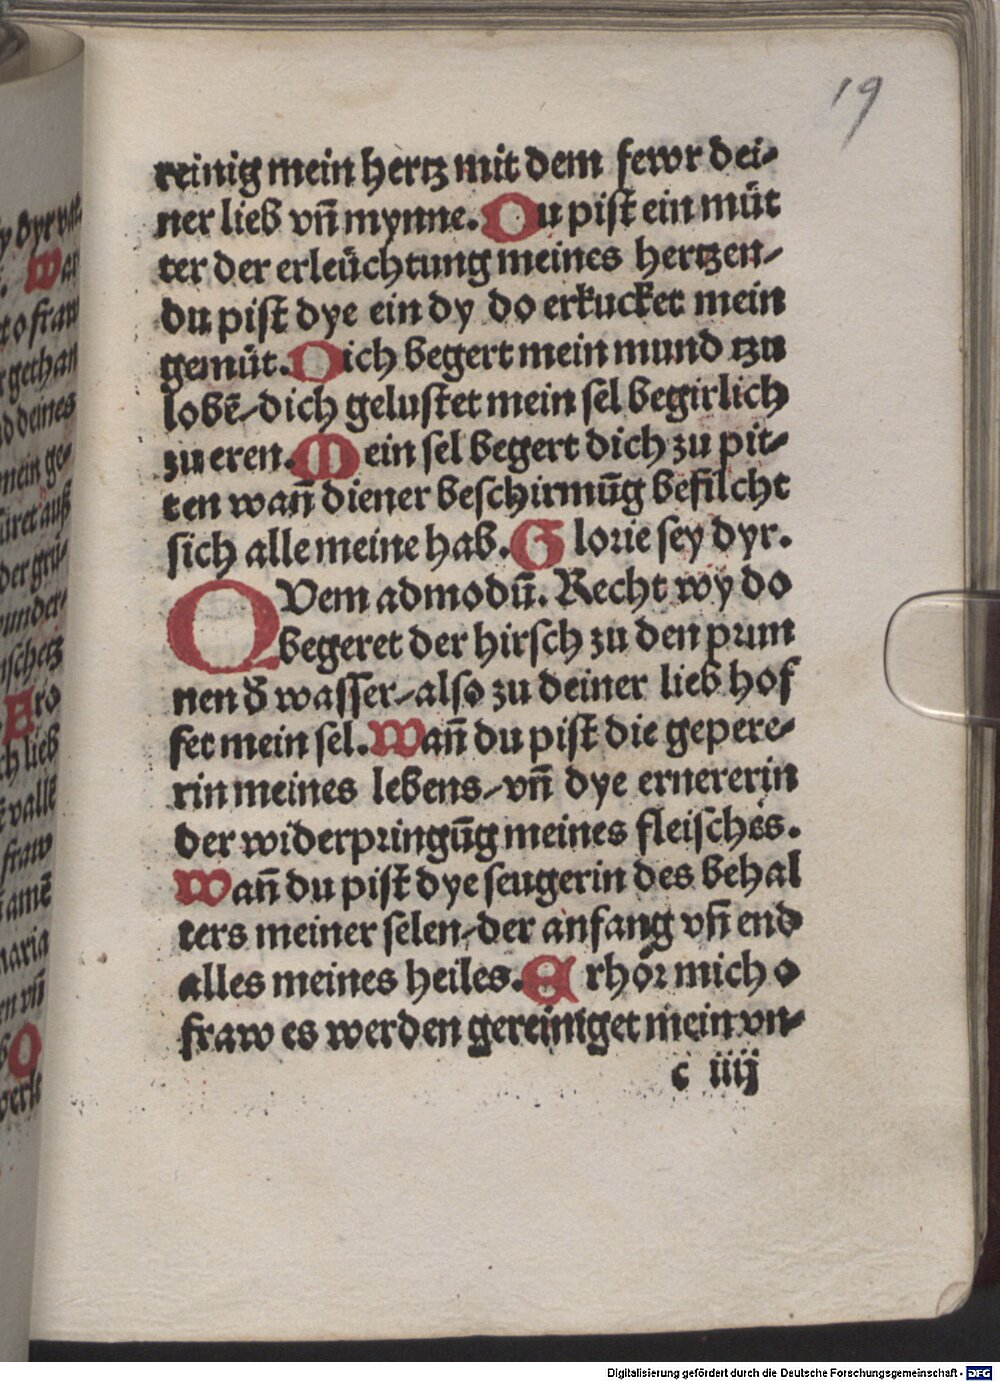 19
reinig mein hertz mit dem fewr dei-
ner lieb vn̄ mynne. Du pist ein müt
ter der erleüchtung meines hertzen-
du pist dye ein dy do erkucket mein
gemüt. Dich begert mein mund tzu
lobē-dich gelustet mein sel begirlich
zu eren. Mein sel begert dich zu pit-
ten wan̄ diener beschirmūg befilcht
sich alle meine hab. Glorie sey dyr.
QVem admodū. Recht wy do
begeret der hirsch zu den prun
nen d̄ wasser-also zu deiner lieb hof
fet mein sel. Wan̄ du pist die gepere-
rin meines lebens-vn̄ dye ernererin
der widerpringūg meines fleisches.
Wan̄ du pist dye seugerin des behal
ters meiner selen-der anfang vn̄ end
alles meines heiles. Erhör mich o
fraw es werden gereiniget mein vn-
c iiij
Digitalisierung gefördert durch die Deutsche Forschungsgemeinschaft - DFG